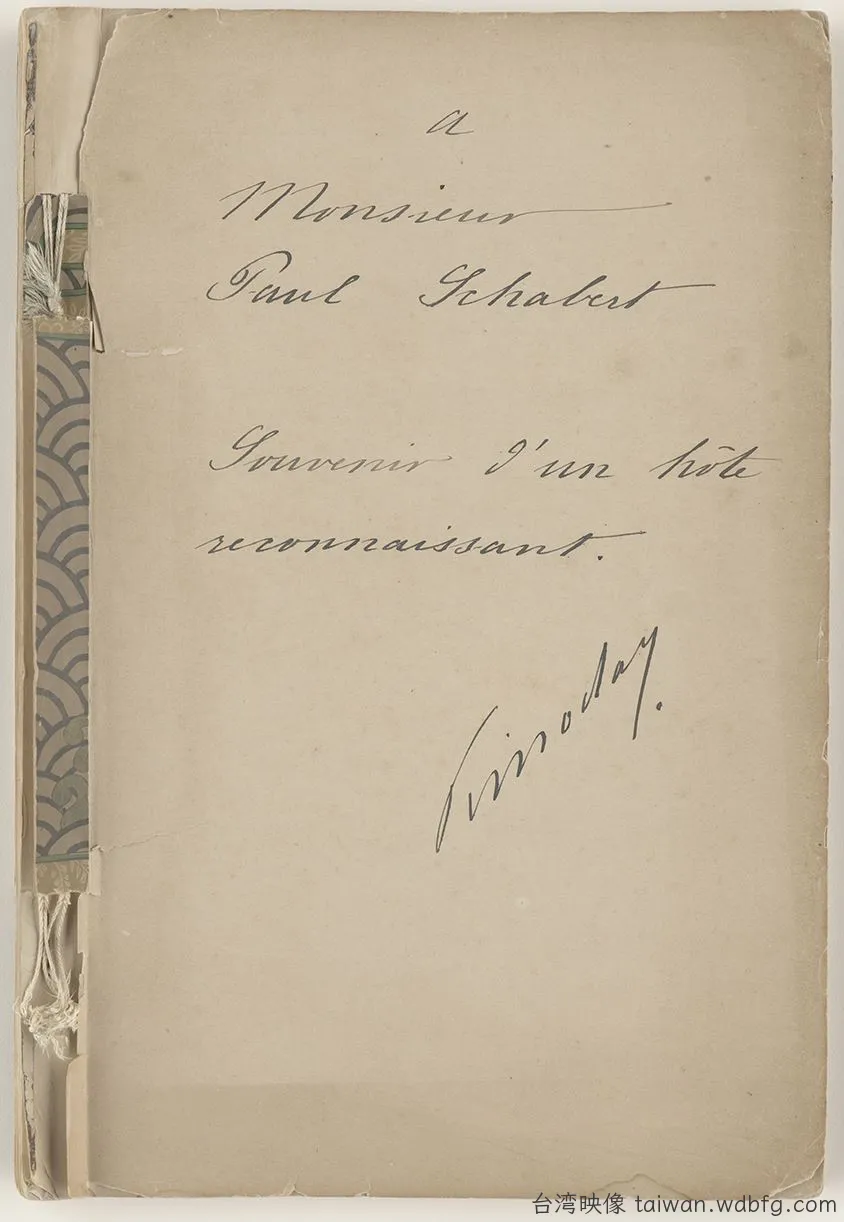 a
Monsieur
Paul Schabert
Souvenir d'un hôte
reconnaissant.
台湾映像 taiwan.wdbfg.com